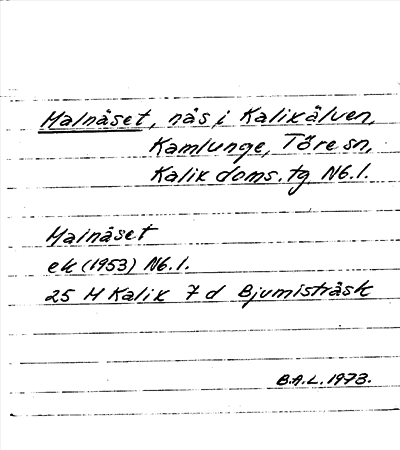 Malnäset, näs i Kalixälven,
Kamlunge, Töre sn,
Kalix doms. tg Nb. l.
Malnäset
ek (1953) Nb. l.
25 M Kalix 7 d Bjumisträsk
B.A.L. 1973.